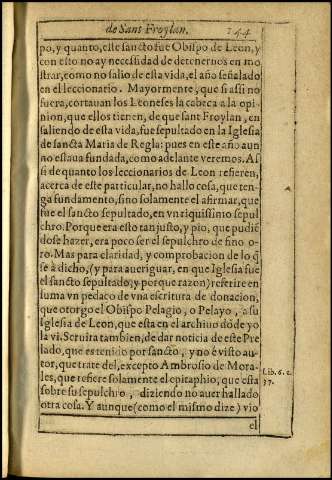 de Sant Froylan. 244
po, y quanto, este sancto fue Obispo de Leon, y
con esto no ay necessidad de detenernos en mo
strar, como no salio de esta vida, el año señalado
en el leccionario. Mayormente, que si assi no
fuera, cortauan los Leoneses la cabeça a la opi-
nion, que ellos tienen, de que sant Froylan, en
saliendo de esta vida, fue sepultado en la Iglesia
de sancta Maria de Regla: pues en este año aun
no estaua fundada, como adelante veremos. As
si de quanto los leccionarios de Leon refieren,
acerca de este particular, no hallo cosa, que ten-
ga fundamento, sino solamente el afirmar, que
fue el sancto sepultado, en vn riquissimo sepul
chro. Porque era esto tan justo, y pio, que pudiē
dose hazer, era poco ser el sepulchro de fino o-
ro. Mas para claridad, y comprobacion de lo q̄
se à dicho, (y para aueriguar, en que Iglesia fue
el sancto sepultado, y porque razon) referire en
suma vn pedaço de vna escritura de donacion,
que otorgo el Obispo Pelagio, o Pelayo, a su
Iglesia de Leon, que esta en el archiuo dōde yo
la vi. Seruira tambien, de dar noticia de este Pre
lado, que es tenido por sancto, y no è visto au-
tor, que trate del, excepto Ambrosio de Mora-
les, que refiere solamente el epitaphio, que esta
sobre su sepulchro, diziendo no auer hallado
otra cosa. Y aunque (como el mismo dize) vio
el
Lib. 6. c.
37.